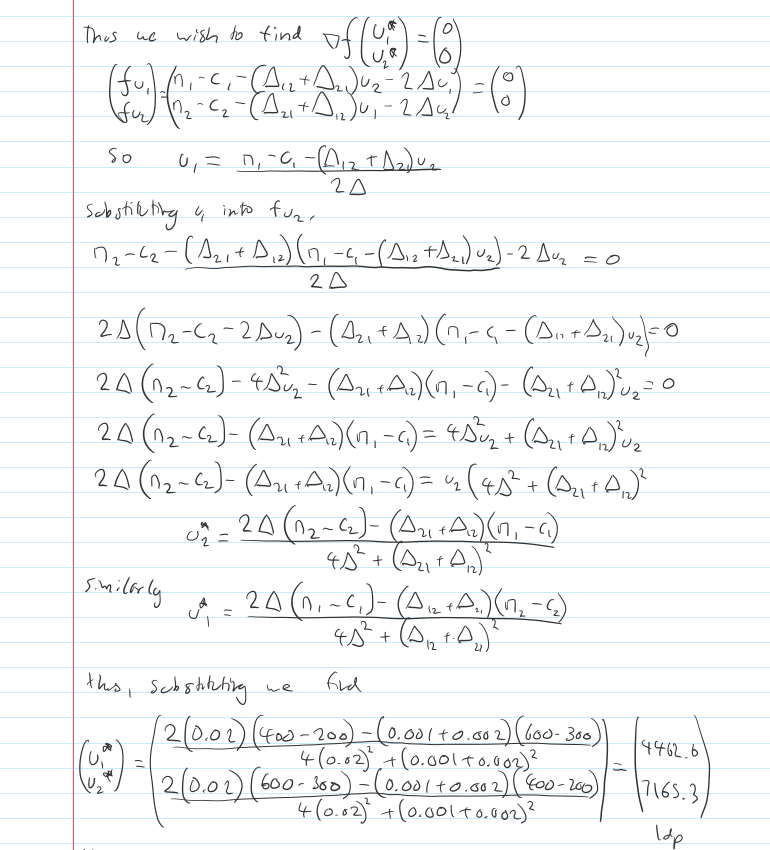 Thus we wish to find ∇f(u₁* u₂*) = (0 0)
(fu₁ fu₂) = (n₁-c₁-(Δ₁₂+Δ₂₁)u₂-2Δu₁
n₂-c₂-(Δ₂₁+Δ₁₂)u₁-2Δu₂) = (0 0)
so u₁ = n₁-c₁-(Δ₁₂+Δ₂₁)u₂
2Δ
Substituting u₁ into fu₂,
n₂-c₂-(Δ₂₁+Δ₁₂)(n₁-c₁-(Δ₁₂+Δ₂₁)u₂)-2Δu₂ = 0
2Δ
2Δ(n₂-c₂-2Δu₂)-(Δ₂₁+Δ₁₂)(n₁-c₁-(Δ₁₂+Δ₂₁)u₂)=0
2Δ(n₂-c₂)-4Δ²u₂-(Δ₂₁+Δ₁₂)(n₁-c₁)-(Δ₂₁+Δ₁₂)²u₂=0
2Δ(n₂-c₂)-(Δ₂₁+Δ₁₂)(n₁-c₁)=4Δ²u₂+(Δ₂₁+Δ₁₂)²u₂
2Δ(n₂-c₂)-(Δ₂₁+Δ₁₂)(n₁-c₁)=u₂(4Δ²+(Δ₂₁+Δ₁₂)²
u₂* = 2Δ(n₂-c₂)-(Δ₂₁+Δ₁₂)(n₁-c₁)
4Δ²+(Δ₂₁+Δ₁₂)²
similarly
u₁* = 2Δ(n₁-c₁)-(Δ₁₂+Δ₂₁)(n₂-c₂)
4Δ²+(Δ₁₂+Δ₂₁)²
thus, substituting we find
2(0.02)(400-200)-(0.001+0.002)(600-300)
4(0.02)²+(0.001+0.002)²
(u₁* u₂*) = = (4462.6 7165.3)
2(0.02)(600-300)-(0.001+0.002)(400-200)
4(0.02)²+(0.001+0.002)²
1dp